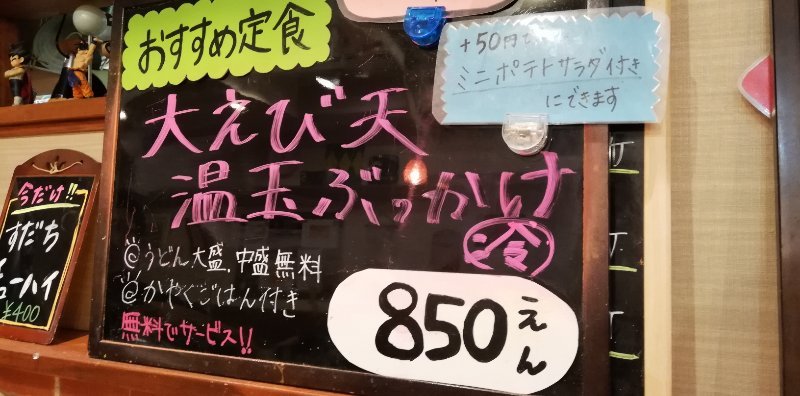 おすすめ定食
+50円で
ミニポテトサラダ付き
にできます
大えび天
温玉ぶっかけ
冷
うどん大盛.中盛無料
かやくごはん付き
無料でサービス!!
850えん
今だけ!!
すだち
チューハイ
¥400